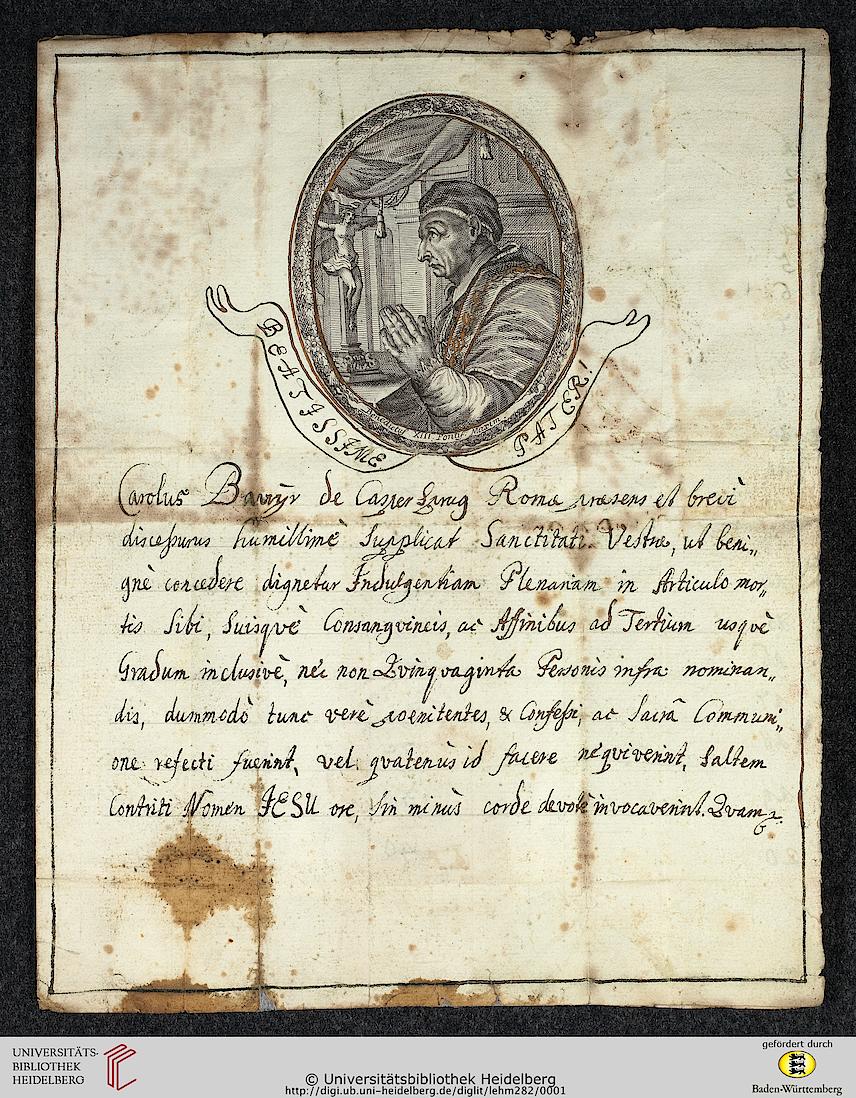 BEATISSIME PATER!
Benedictus XIII Pontif. Maxim
Carolus de Romæ præsens et brevi
discessurus humillimè Supplicat Sanctitati Vestræ, ut beni„
gnè concedere dignetur Indulgentiam Plenariam in Articulo mor„
tis Sibi, Suisquè Consangvineis, ac Affinibus ad Tertium usquè
Gradum inclusivè, nec non Qvinqvaginta Personis infra nominan„
dis, dummodò tunc verè poenitentes, & Confessi, ac Sacrâ Communi„
one refecti fuerint, vel qvatenùs id facere neqviverint, Saltem
Contriti Nomen JESU ore, sin minùs corde devotè invocaverint. Qvam
UNIVERSITÄTS-
BIBLIOTHEK
HEIDELBERG
© Universitätsbibliothek Heidelberg
http://digi.ub.uni-heidelberg.de/diglit/lehm282/0001
gefördert durch
Baden-Württemberg